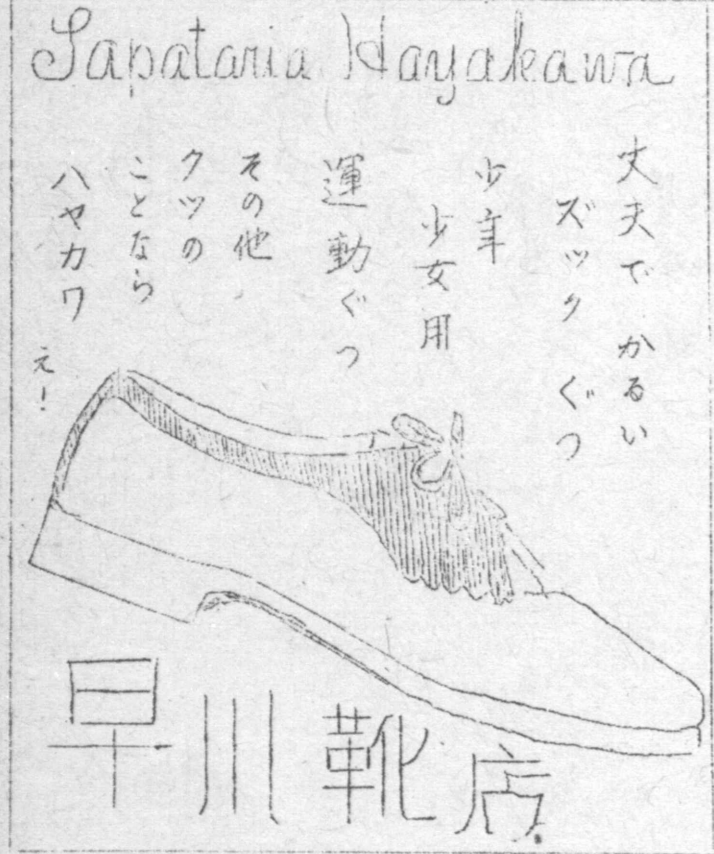 Sapataria Hayakawa
丈夫で かるい
ズック ぐつ
少年
少女用
運動ぐつ
その他
クツの
ことなら
ハヤカワ
え！
早川靴店